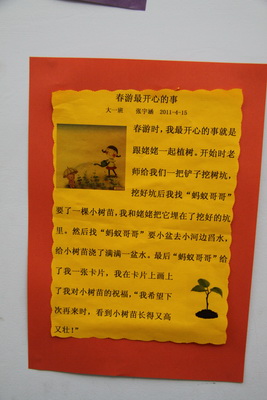 春游最开心的事
大一班 张宇涵 2011-4-18
春游时，我最开心的事就是
跟姥姥一起植树。开始时老
师给我们一把铲子挖树坑，
挖好坑后我找“蚂蚁哥哥”
要了一棵小树苗，我和姥姥把它埋在了挖好的坑
里。然后找“蚂蚁哥哥”要小盆去小河边舀水，
给小树苗浇了满满一盆水。最后“蚂蚁哥哥”给
了我一张卡片，我在卡片上画上
了我对小树苗的祝福，“我希望下
次再来时，看到小树苗长得又高
又壮！”